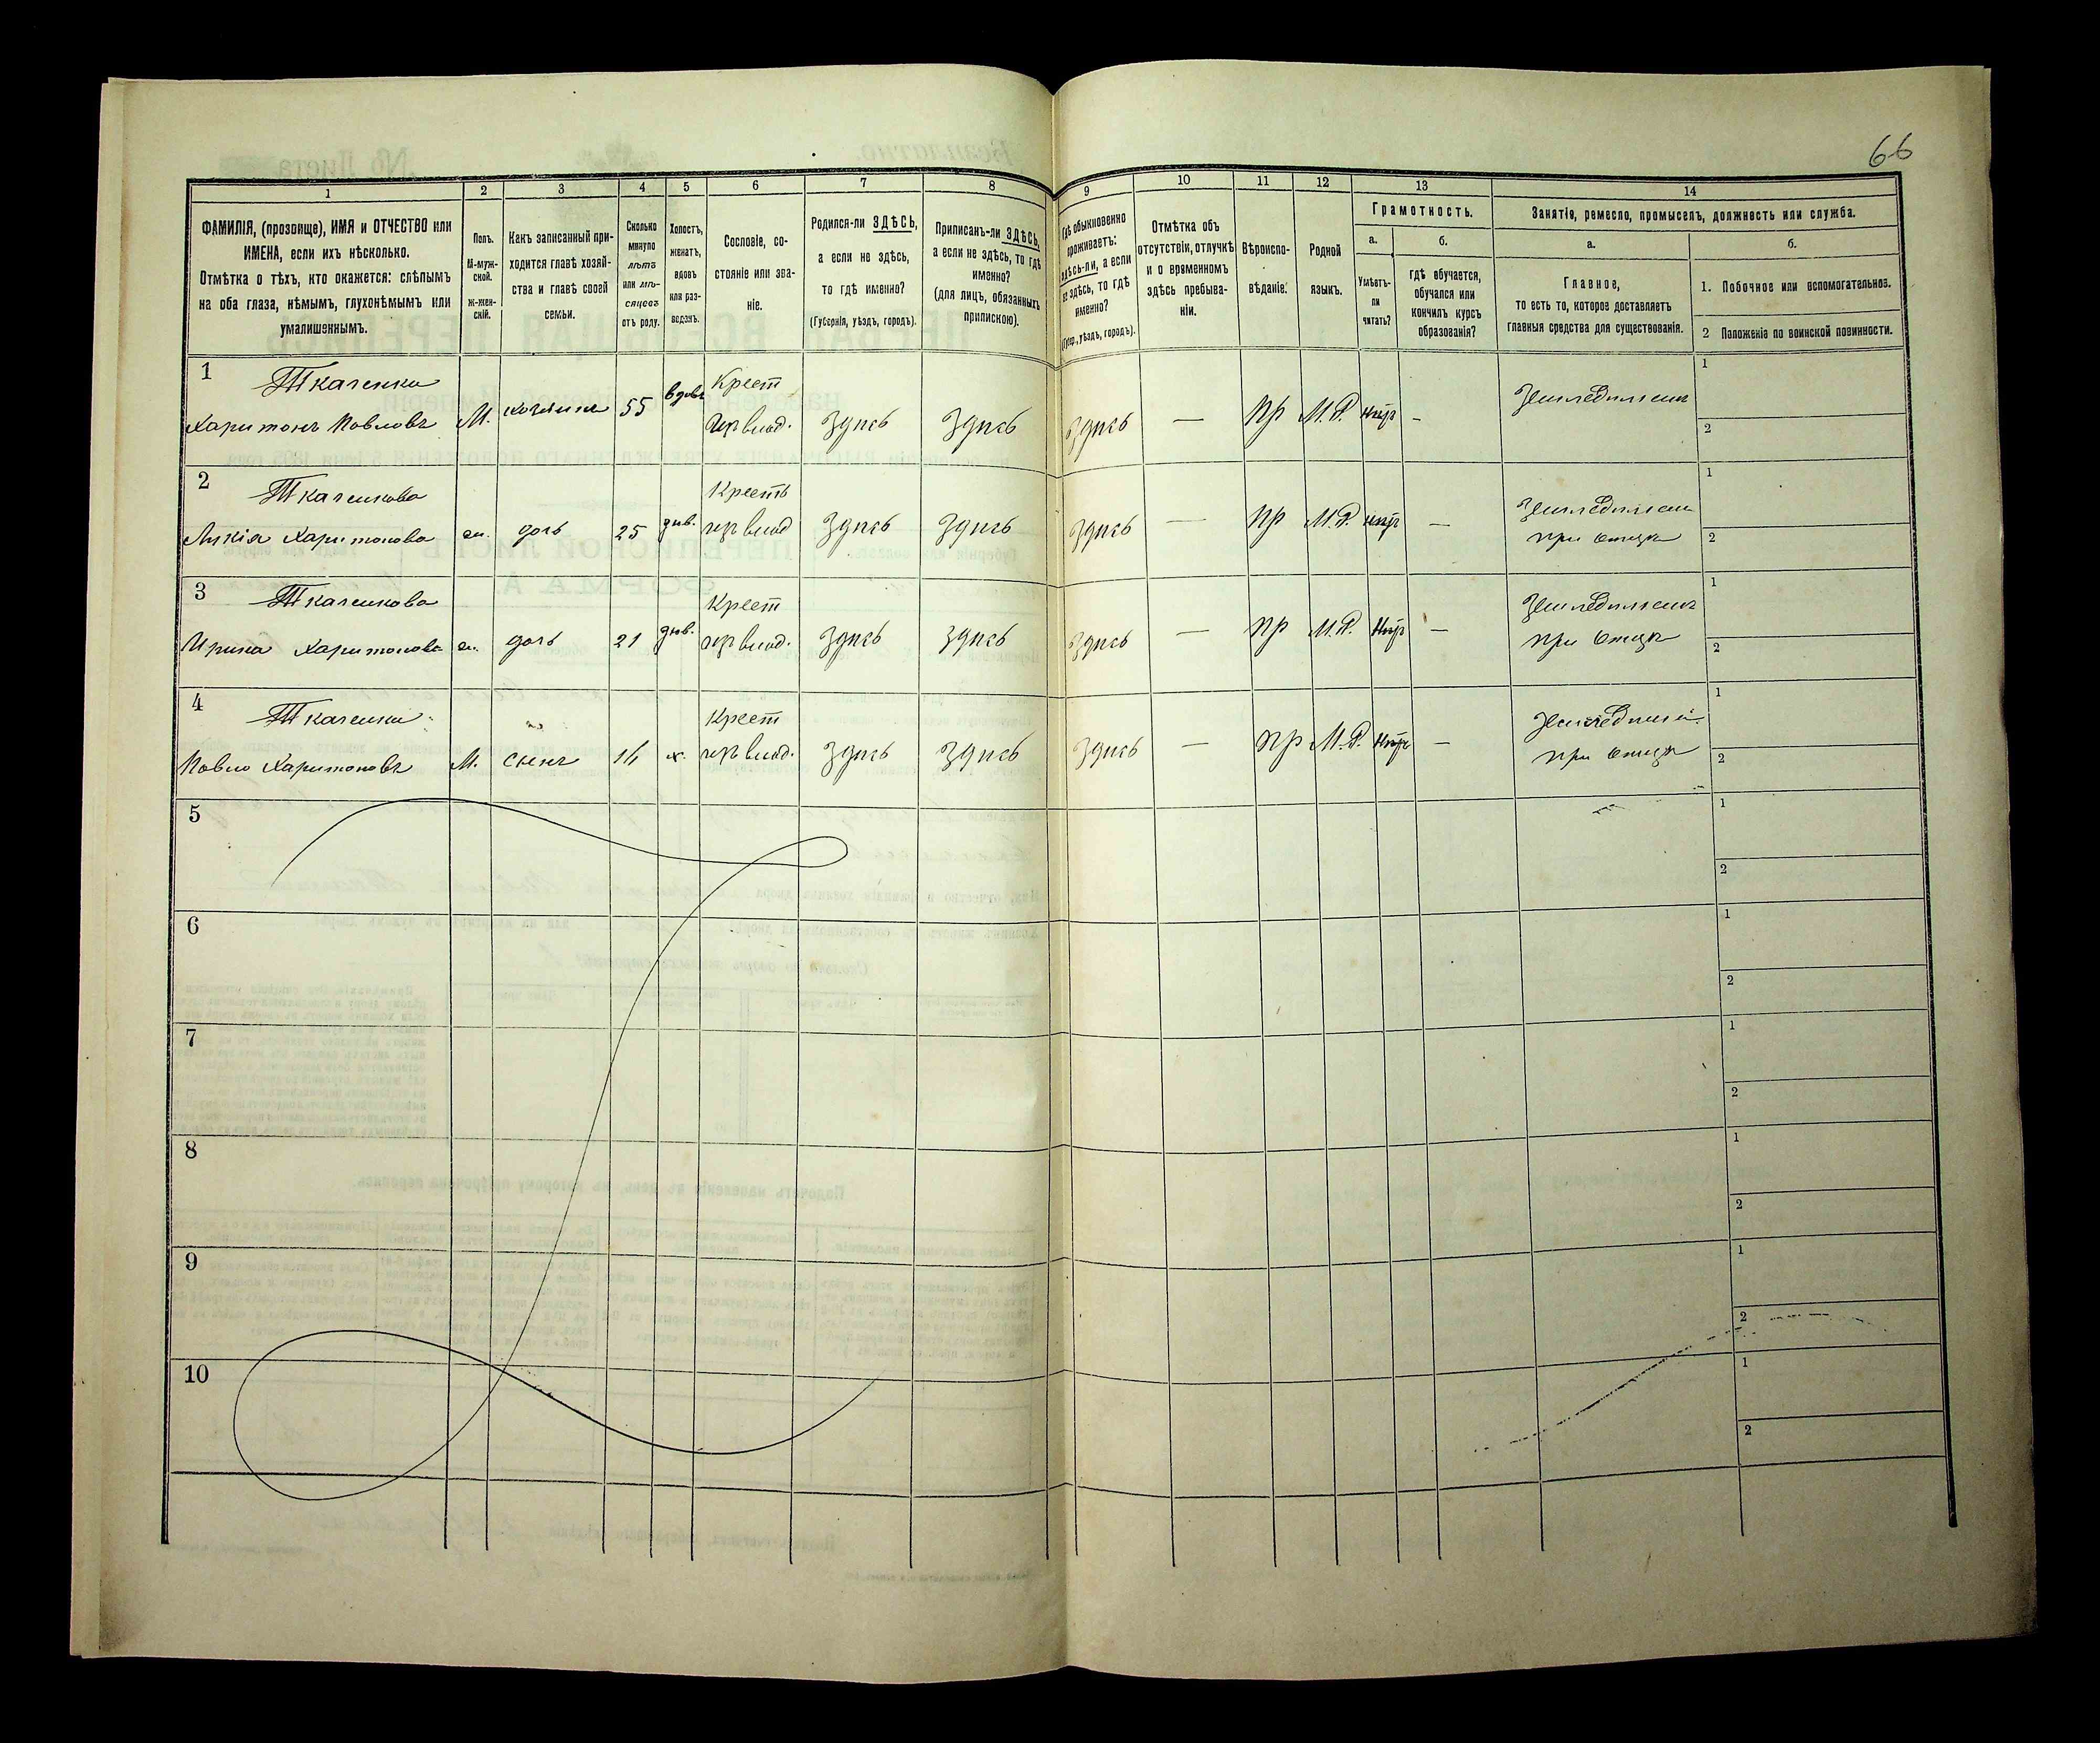 66
1 2 3 4 5 6 7 8 9 10 11 12 13 14
ФАМИЛІЯ, (прозвище), ИМЯ и ОТЧЕСТВО или
ИМЕНА, если ихъ нѣсколько.
Отмѣтка о тѣхъ, кто окажется: слѣпымъ
на оба глаза, нѣмымъ, глухонѣмымъ или
умалишеннымъ.
Полъ.
М-муж-
ской.
Ж-жен-
скій.
Какъ записанный при-
ходится главѣ хозяй-
ства и главѣ своей
семьи.
Сколько
минуло
лѣтъ
или мѣ-
сяцевъ
отъ роду.
Холостъ,
женатъ,
вдовъ
или раз-
веденъ.
Сословіе, со-
стояніе или зва-
ніе.
Родился-ли ЗДѢСЬ,
а если не здѣсь,
то гдѣ именно?
(Губернія, уѣздъ, городъ).
Приписанъ-ли ЗДѢСЬ,
а если не здѣсь, то гдѣ
именно?
(для лицъ, обязанныхъ
припискою).
Гдѣ обыкновенно
проживаетъ:
здѣсь-ли, а если
не здѣсь, то гдѣ
именно?
(Губер., уѣздъ, городъ).
Отмѣтка объ
отсутствіи, отлучкѣ
и о временномъ
здѣсь пребыва-
ніи.
Вѣроиспо-
вѣданіе.
Родной
языкъ.
Грамотность.
а.
Умѣетъ-
ли
читать?
б.
гдѣ обучается,
обучался или
кончилъ курсъ
образованія?
Занятіе, ремесло, промыселъ, должность или служба.
а.
Главное,
то есть то, которое доставляетъ
главныя средства для существованія.
б.
1. Побочное или вспомогательное.
2 Положеніе по воинской повинности.
1 Ткаченко вдовъ Крест Земледѣлецъ 1
Харитонъ Павловъ М. хозяинъ 55 Здѣсь Здѣсь Здѣсь — пр М.Р. — 2
2 Ткаченкова Кресть 1
Харитонова дочь 25 дѣв. Здѣсь Здѣсь Здѣсь — пр М.Р. — при отцѣ 2
3 Ткаченкова Крест 1
Ирина Харитонова дочь 21 дѣв. Здѣсь Здѣсь Здѣсь — пр М.Р. — при отцѣ 2
4 Ткаченко Крест 1
Павло Харитоновъ М. сынъ х. Здѣсь Здѣсь Здѣсь — пр М.Р. — при отцѣ 2
5 1
2
6 1
2
7 1
2
8 1
2
9 1
2
10 1
2